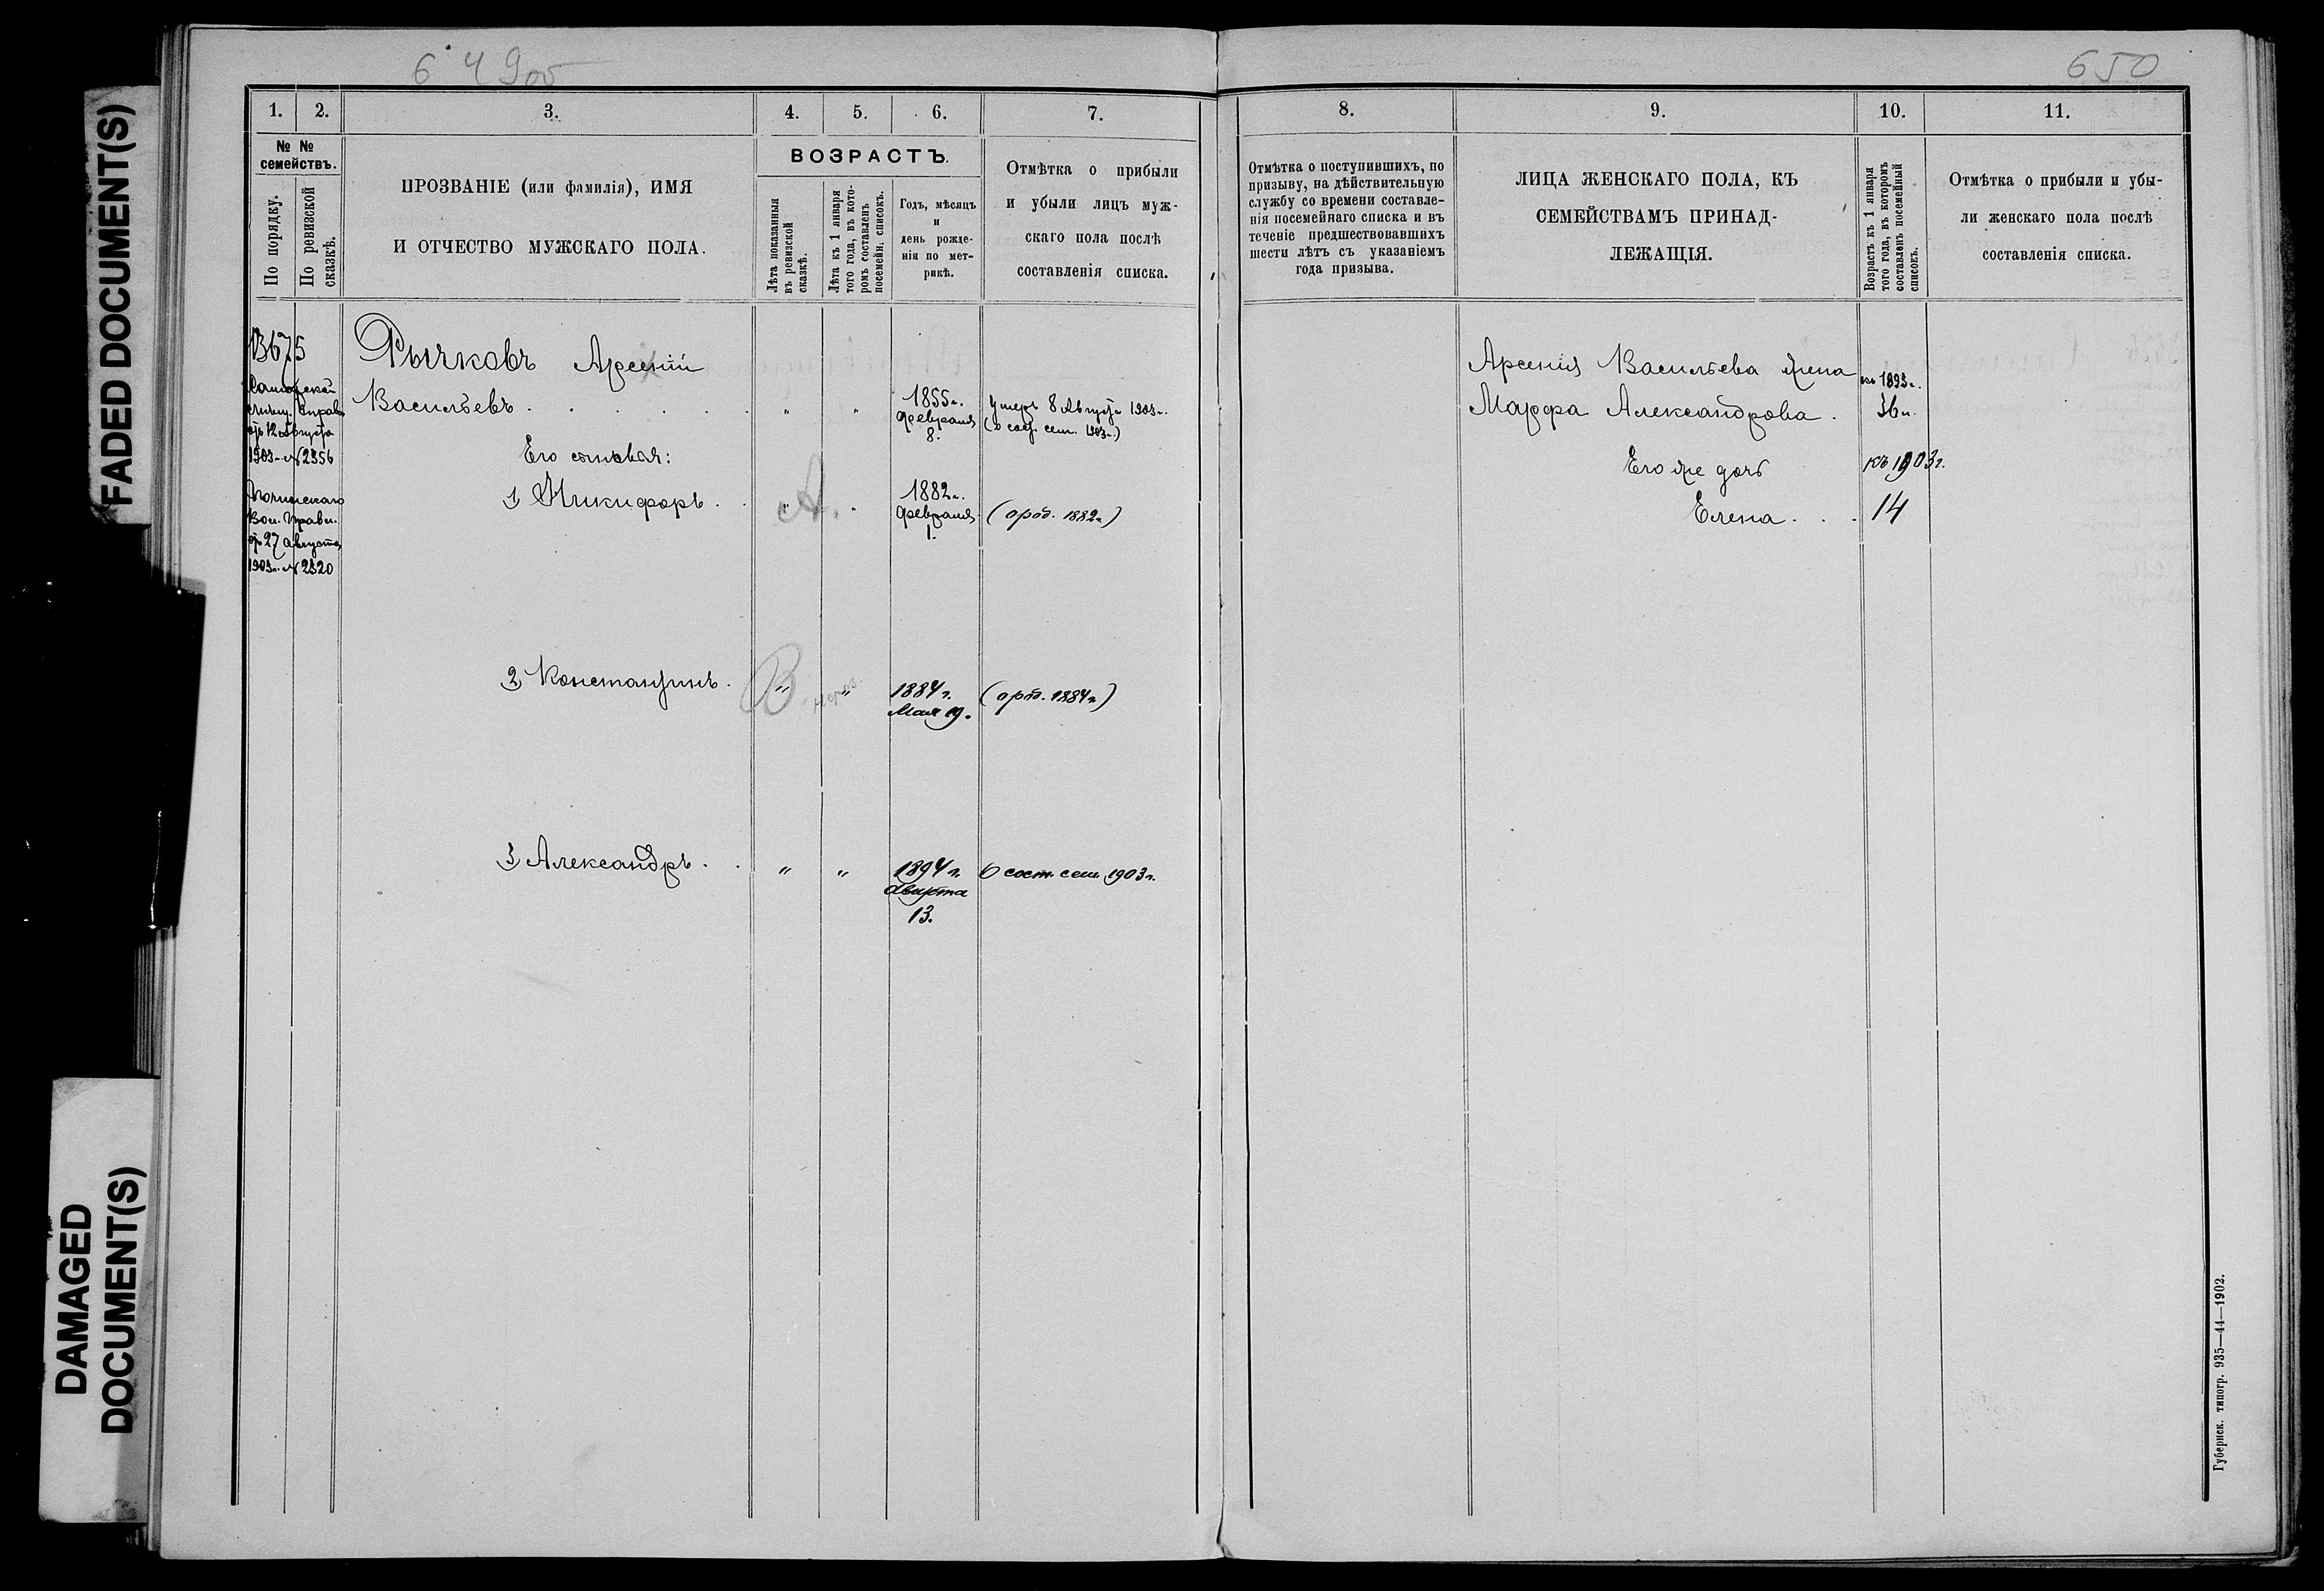 6 4 9 об
650
FADED DOCUMENT(S)
DAMAGED
DOCUMENT(S)
1.
2.
3.
4.
5.
6.
7.
№ №
семействъ.
По порядку.
По ревизской
сказкѣ.
ПРОЗВАНІЕ (или фамилія), ИМЯ
И ОТЧЕСТВО МУЖСКАГО ПОЛА.
ВОЗРАСТЪ.
Лѣта показанныя
въ ревизской
сказкѣ.
Лѣта къ 1 января
того года, въ кото-
ромъ составленъ
посемейн. списокъ.
Годъ, мѣсяцъ
и
день рожде-
нія по мет-
рикѣ.
Отмѣтка о прибыли
и убыли лицъ муж-
скаго пола послѣ
составленія списка.
13675
отъ 12 августа
1903 г. № 2356
Вол. Правл.
отъ 27 августа
1903 г. № 2320
Рычковъ Арсеній
Васильевъ . . . . . . " "
1855 г.
февраля
8.
Умеръ 8 Августа 1903 г.
(о сост. сем. 1903 г.)
Его сыновья:
1) Никифоръ . " А. "
1882 г.
февраля
1.
2) Константинъ . В. " "
1884 г.
Мая 19.
3) Александръ . . " "
1894 г.
Августа
13.
о сост. сем. 1903 г.
8.
9.
10.
11.
Отмѣтка о поступившихъ, по
призыву, на дѣйствительную
службу со времени составле-
нія посемейнаго списка и въ
теченіе предшествовавшихъ
шести лѣтъ съ указаніемъ
года призыва.
ЛИЦА ЖЕНСКАГО ПОЛА, КЪ
СЕМЕЙСТВАМЪ ПРИНАД-
ЛЕЖАЩІЯ.
Возрастъ къ 1 января
того года, въ которомъ
составленъ посемейный
списокъ.
Отмѣтка о прибыли и убы-
ли женскаго пола послѣ
составленія списка.
Арсенія Васильева жена
къ 1893 г.
Марфа Александрова . 36 л.
Его же дочь къ 1903 г.
Елена . . . 14
Губернск. типогр. 935—44—1902.